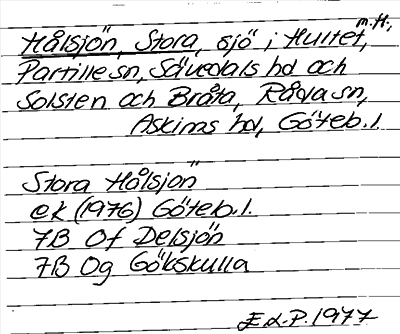 Hålsjön, Stora, sjö i Hultet, m.fl.,
Partille sn, Sävedals hd och
Solsten och Bråta, Råda sn,
Askims hd, Göteb. l.
Stora Hålsjön
ek (1976) Göteb. l.
7B 0f Delsjön
7B 0g Gökskulla
E d-P. 1977